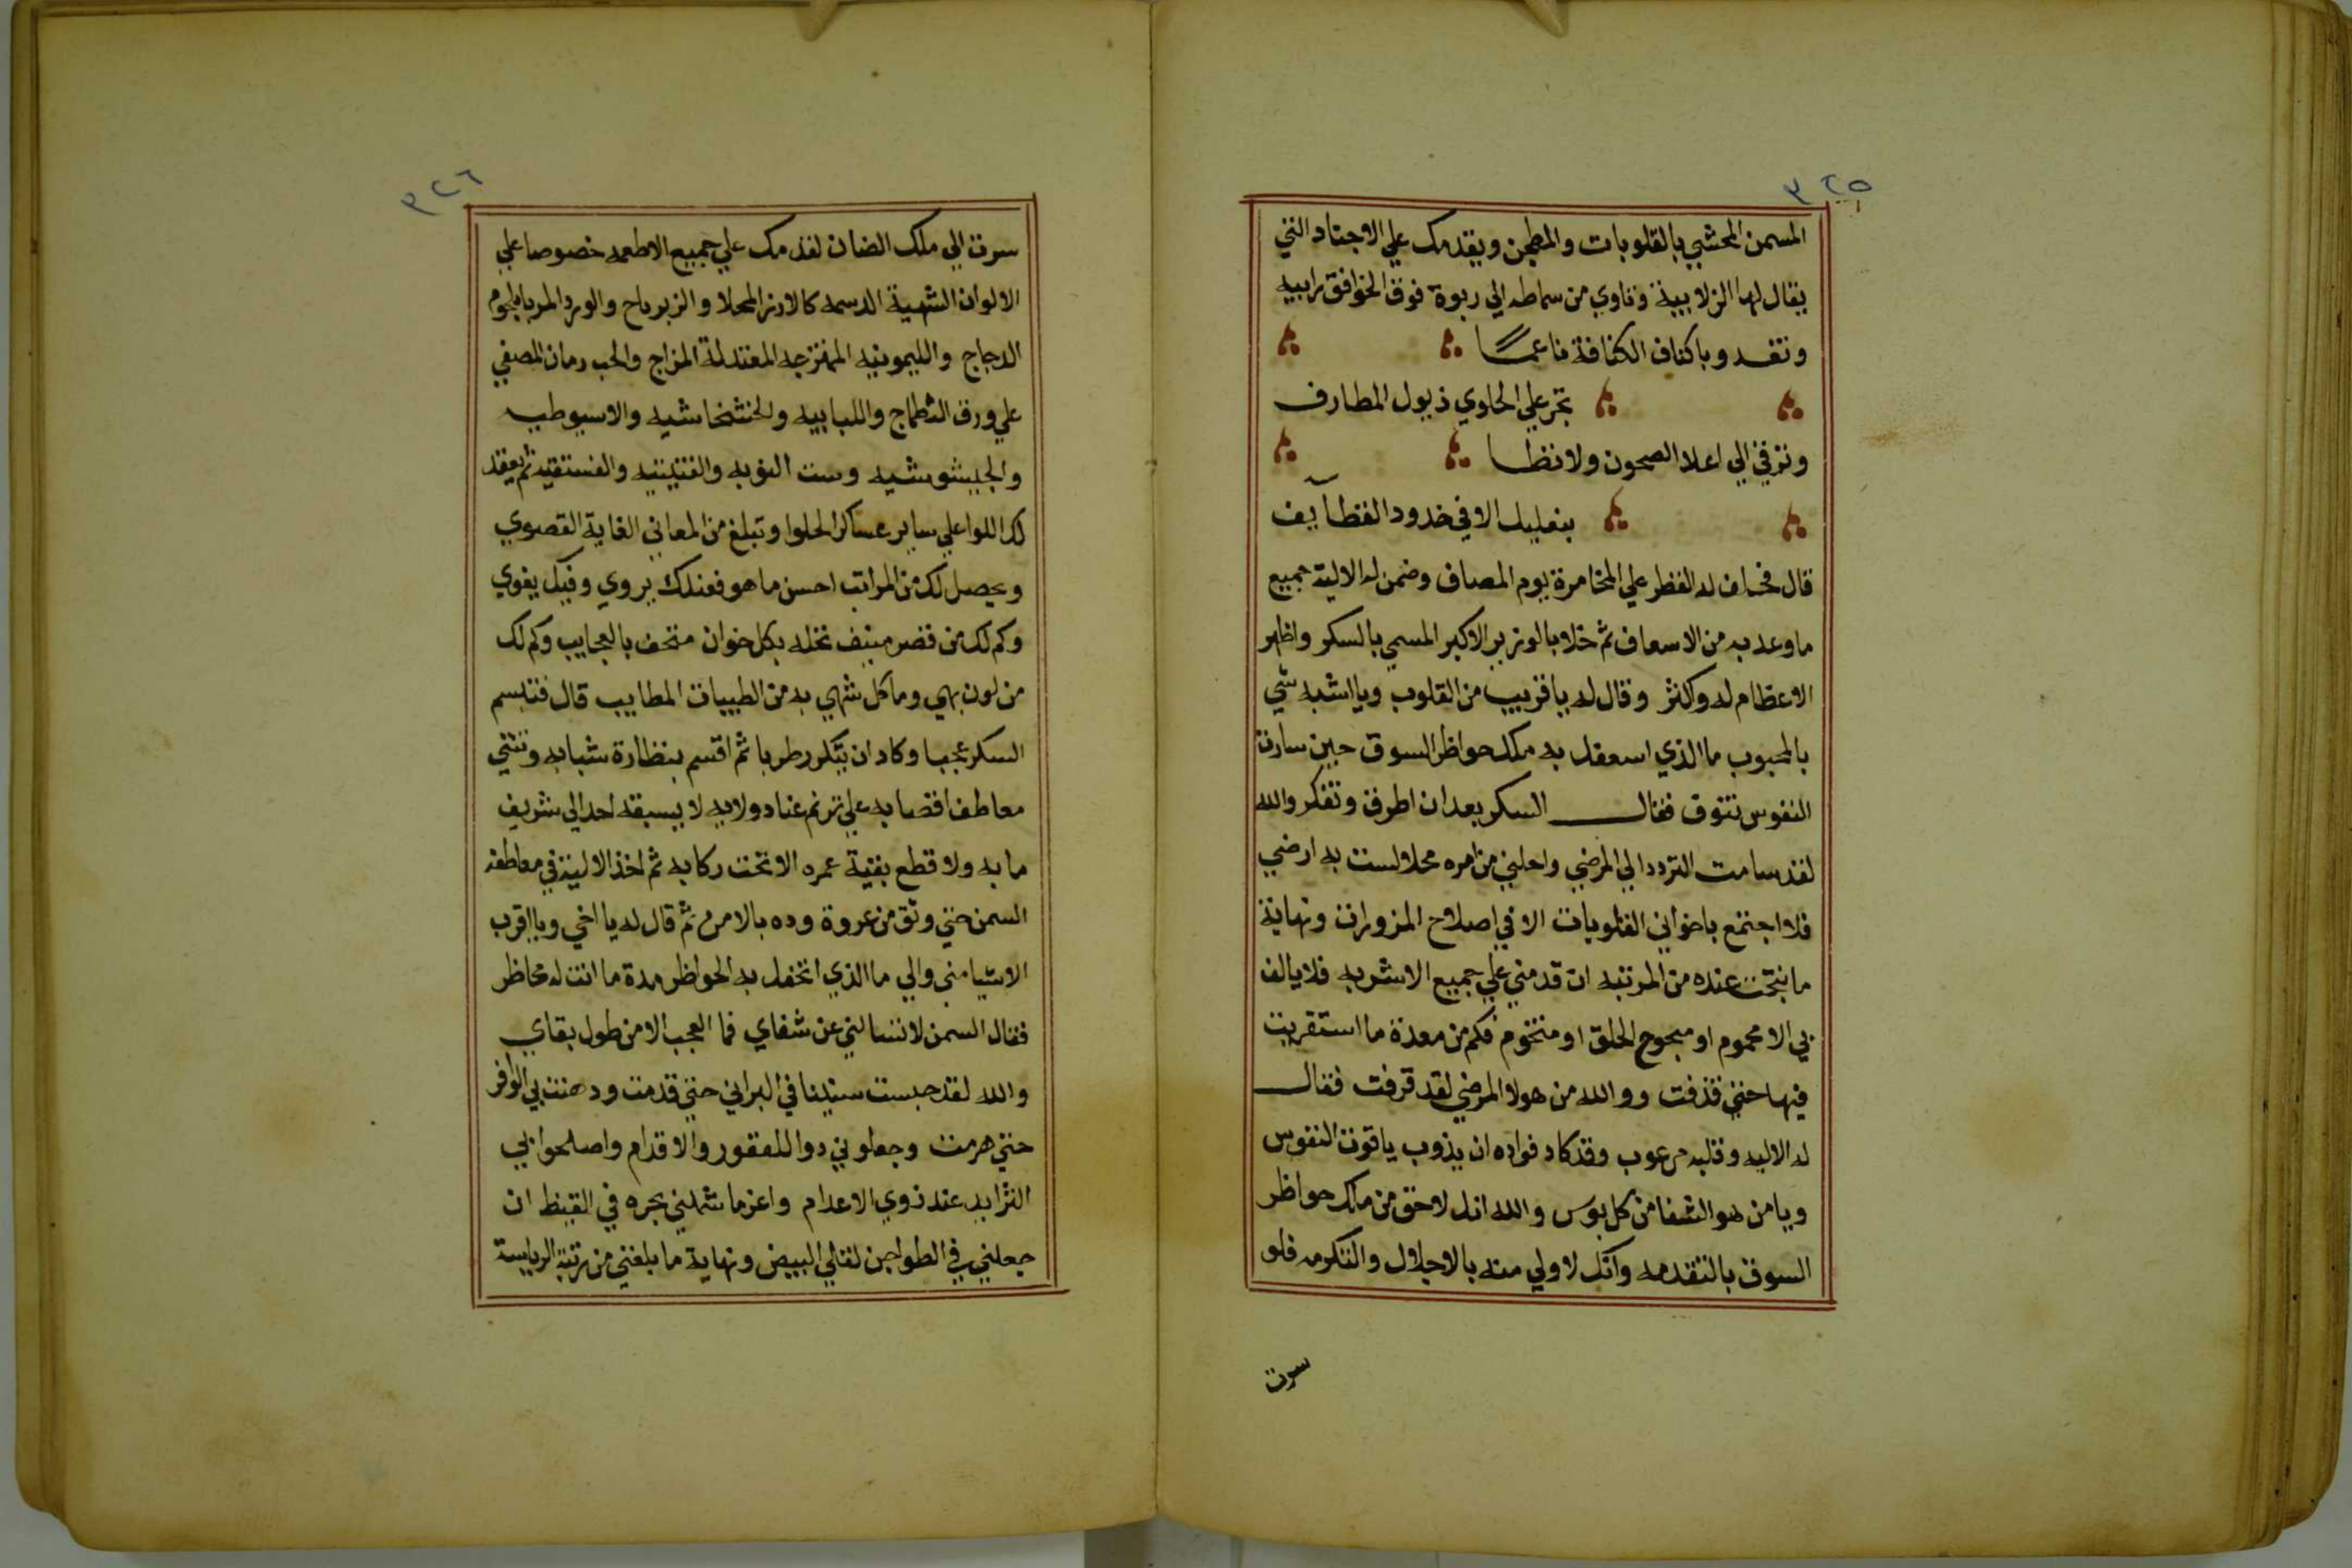 ٣٢٥
المسمن المحشي بالقلوبات والمطجن ويقدمك علي الاجناد التي
يقال لها الزلابية وتاوي من سماطه الي ربوة فوق الخوافق رابيه
وتغدو باكناف الكنافة ناعما
تجر علي الحلوي ذيول المطارف
وترقي الي اعلا الصحون ولا تطا
بنعليك الا في خدود القطايف
قال فحلف له القطر علي المخامرة يوم المصاف وضمن له الالية جميع
ما وعد به من الاسعاف ثم خلا بالوزير الاكبر المسمي بالسكر واظهر
الاعظام له وكثر وقال له يا قريب من القلوب ويا اشبه شي
بالمحبوب ما الذي اسعفك به ملك حواظر السوق حين سارت
النفوس تتوق فقال السكر بعد ان اطرق وتفكر والله
لقد سامت التردد الي المرضي واحلني من امره محلا لست به ارضي
فلا اجتمع باخواني القلوبات الا في اصلاح المزورات ونهاية
ما نتجت عنده من المرتبه ان قدمني علي جميع الاشربه فلا يالف
بي الا محموم او مبحوح الحلق او متخوم فكم من معدة ما استقريت
فيها حتي قذفت ووالله من هولا المرضي لقد قرفت فقال
له الاليه وقلبه مرعوب وقد كاد فواده ان يذوب يا قوت النفوس
ويا من هو الشفا من كل بوس والله انك لاحق من ملك حواظر
السوق بالتقدمه وانك لاولي منه بالاجلال والتكرمه فلو
سرت
٣٢٦
سرت الي ملك الضان لقدمك علي جميع الاطعمه خصوصا علي
الالوان الشهية الدسمه كالارز المحلا والزيرباح والورد المربا بلحوم
الدجاج والليمونيه الممتزجه المعتدلة المزاج والحب رمان المصفي
علي ورق الططماج واللبابيه والخشخاشيه والاسيوطيه
والجيشوشيه وست النوبه والفتيتيه والفستقيه ثم يعقد
لك اللوا علي ساير عساكر الحلوا وتبلغ من المعاني الغاية القصوي
ويحصل لك من المراتب احسن ما هو فعندك يروي وفيك يقوي
وكم لك من قصر منيف تحله بكل خوان متحف بالعجايب وكم لك
من لون بهي وماكل شهي به من الطيبات المطايب قال فتبسم
السكر عجبا وكاد ان يتكرر طربا ثم اقسم بنظارة شبابه وتثني
معاطف اقصابه علي ترنم غنا دولابه لا يسبقه احد الي شريف
ما به ولا قطع بقية عمره الا تحت ركابه ثم اخذ الالية في معاطفة
السمن حتي وثق من عروة وده بالامن ثم قال له يا اخي ويا اقرب
الاشيا مني والي ما الذي اتحفك به الحواظر مدة ما انت له محاظر
فقال السمن لا تسالني عن شفاي فما العجب الا من طول بقاي
والله لقد حبست سنينا في البراني حتي قدمت ودهنت بي الوافر
حتي هرمت وجعلوني دوا للعقور والاقدام واصلحوا بي
الثرايد عند ذوي الاعدام واعز ما شملني بجره في القيظ ان
جعلني في الطواجن لقلي البيض ونهاية ما بلغني من رتبة الرياسة